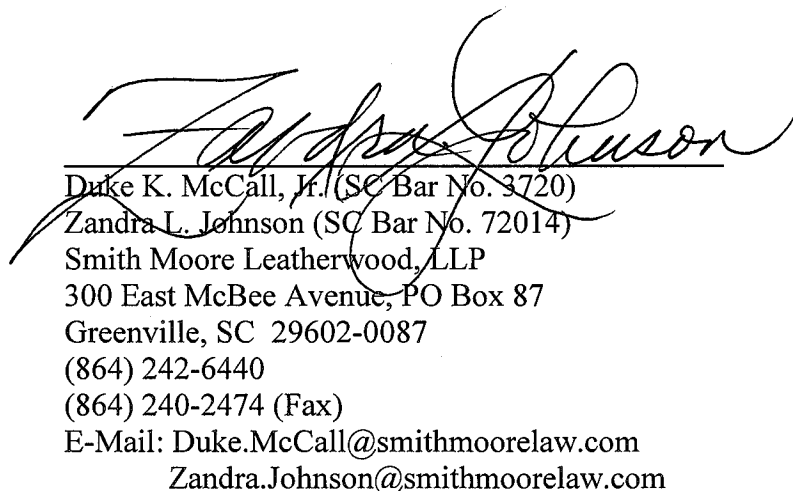 Zandra Johnson
Duke K. McCall, Jr. (SC Bar No. 3720)
Zandra L. Johnson (SC Bar No. 72014)
Smith Moore Leatherwood, LLP
300 East McBee Avenue, PO Box 87
Greenville, SC 29602-0087
(864) 242-6440
(864) 240-2474 (Fax)
E-Mail: Duke.McCall@smithmoorelaw.com
Zandra.Johnson@smithmoorelaw.com